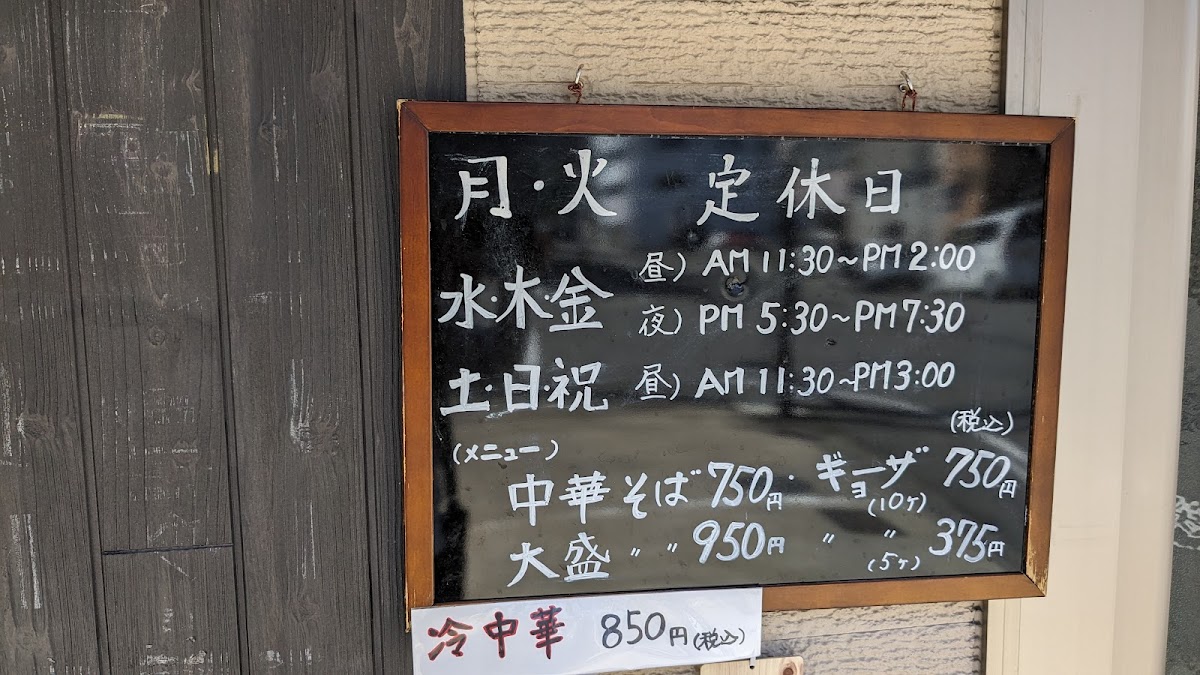 月・火 定休日
水・木・金 昼) AM 11:30～PM 2:00
夜) PM 5:30～PM 7:30
土・日・祝 昼) AM 11:30～PM 3:00
(税込)
(メニュー)
中華そば 750円・ギョーザ(10ケ) 750円
大盛 〃 〃 950円 〃 〃 (5ケ) 375円
冷中華 850円(税込)